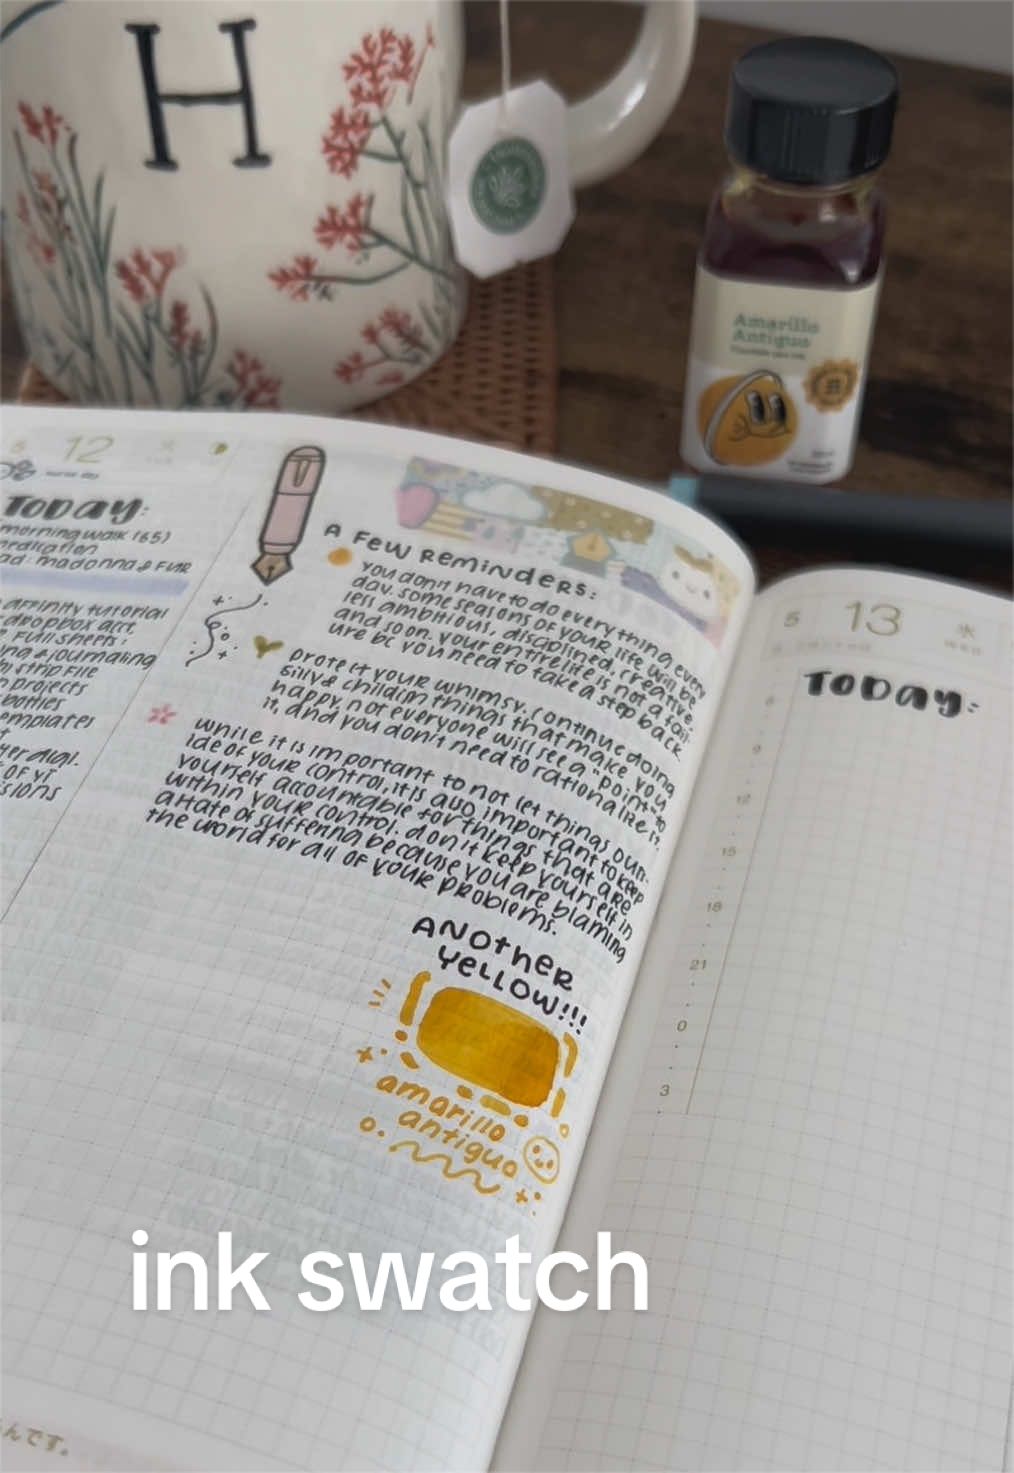 H
Amarillo
Antiguo
12
Today:
morning walk (65)
meditation
ad: madonna & fur
affinity tutorial
dropbox acct.
full sheets:
& journaling
strip file
projects
bottles
templates
er digi.
of yr
A Few Reminders:
you don't have to do everything every
day. some seasons of your life will be
less ambitious, disciplined, creative,
and so on. your entire life is not a fail-
ure bc you need to take a step back.
protect your whimsy. continue doing
silly & childish things that make you
happy. not everyone will see a "point" to
it, and you don't need to rationalize it.
while it is important to not let things out-
ide of your control, it is also important to keep
yourself accountable for things that are
within your control. don't keep yourself in
a state of suffering because you are blaming
the world for all of your problems.
Another
Yellow!!!
amarillo
antiguo
5 13 水
Today:
6
9
12
15
18
21
0
3
ink swatch
んです。